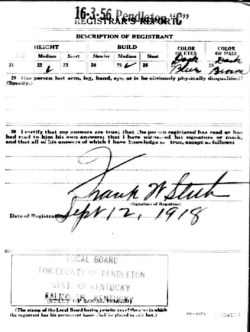 16-3-56 Pendleton "C"
REGISTRAR'S REPORT
DESCRIPTION OF REGISTRANT
HEIGHT BUILD COLOR OF EYES COLOR OF HAIR
Tall Medium Short Slender Medium Stout
21 22 23 24 25 26 27 Blue 28 Brown
29 Has person lost arm, leg, hand, eye, or is he obviously physically disqualified?
(Specify.)
30 I certify that my answers are true; that the person registered has read or has
had read to him his own answers; that I have witnessed his signature or mark,
and that all of his answers of which I have knowledge are true, except as follows:
Frank W
(Signature of Registrar)
Date of Registration Sept 12, 1918
LOCAL BOARD
FOR COUNTY OF PENDLETON
STATE OF KENTUCKY
FALMOUTH KENTUCKY
(STAMP OF LOCAL BOARD)
(The stamp of the Local Board having jurisdiction of the area in which
the registrant has his permanent home shall be placed in this box.)